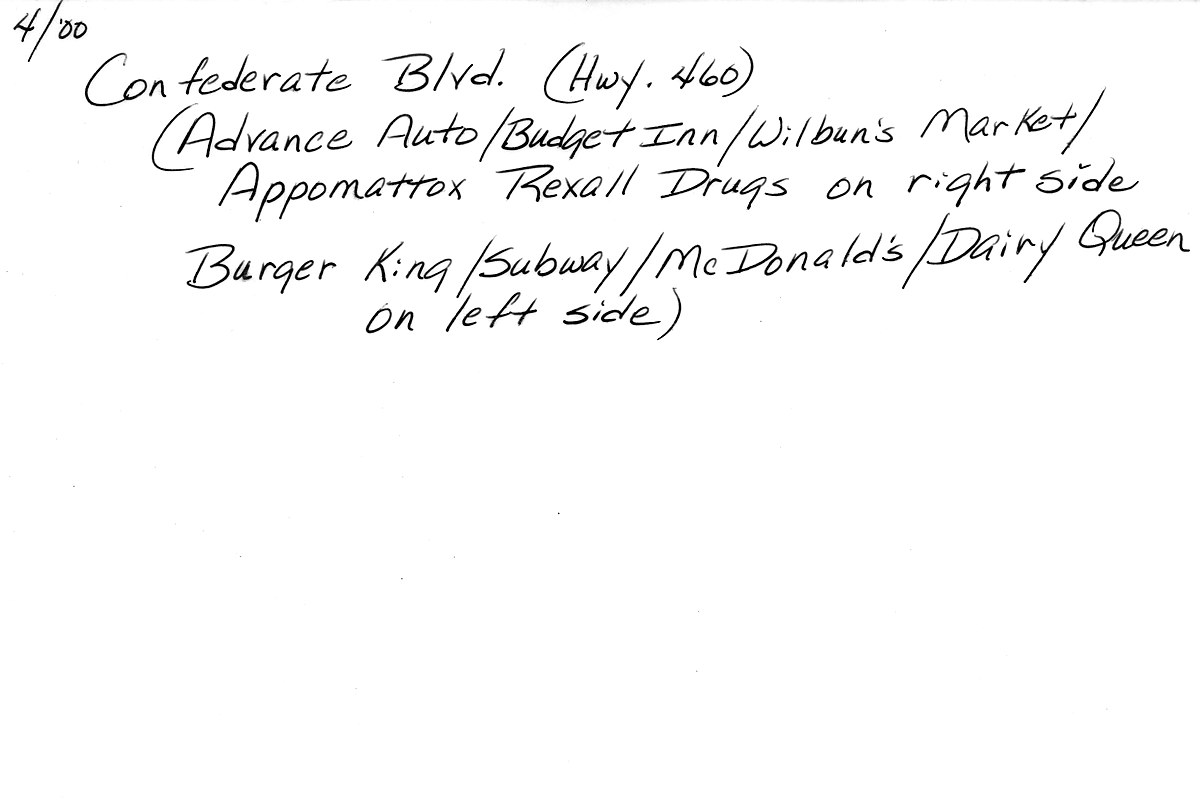 4/'00
Confederate Blvd. (Hwy. 460)
(Advance Auto/Budget Inn/Wilbun's Market/
Appomattox Rexall Drugs on right side
Burger King/Subway/McDonald's/Dairy Queen
on left side)